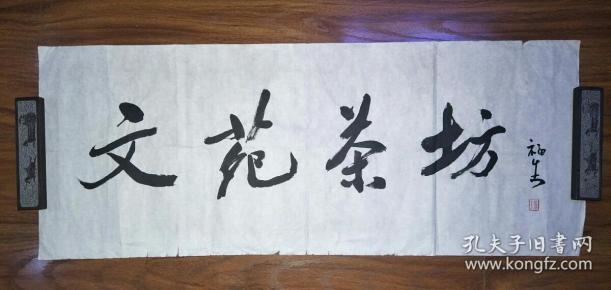 文苑茶坊
福生
孔夫子旧书网
www.kongfz.com